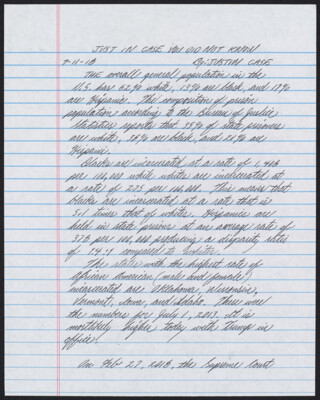 JUST IN CASE YOU DID NOT KNOW
7-11-18 By: JUSTIN CASE
The overall general population in the
U.S. has 62% white, 13% are black, and 17%
are Hispanic. The composition of prison
population according to the Bureau of Justice
Statistics reports that 35% of state prisoners
are white, 38% are black, and 21% are
Hispanic.
Blacks are incarcerated at a rate of 1,408
per 100,000 while whites are incarcerated at
a rate of 275 per 100,000. This means that
blacks are incarcerated at a rate that is
5.1 times that of whites. Hispanics are
held in state prisons at an average rate of
378 per 100,000 producing a disparity rates
of 1.4:1 compared to whites.
The states with the highest rate of
African American (male and female)
incarcerated are Oklahoma, Wisconsin,
Vermont, Iowa, and Idaho. These were
the numbers for July 1, 2013. It is
higher today with Trump in
office!
On Feb 27, 2018, the Supreme Court